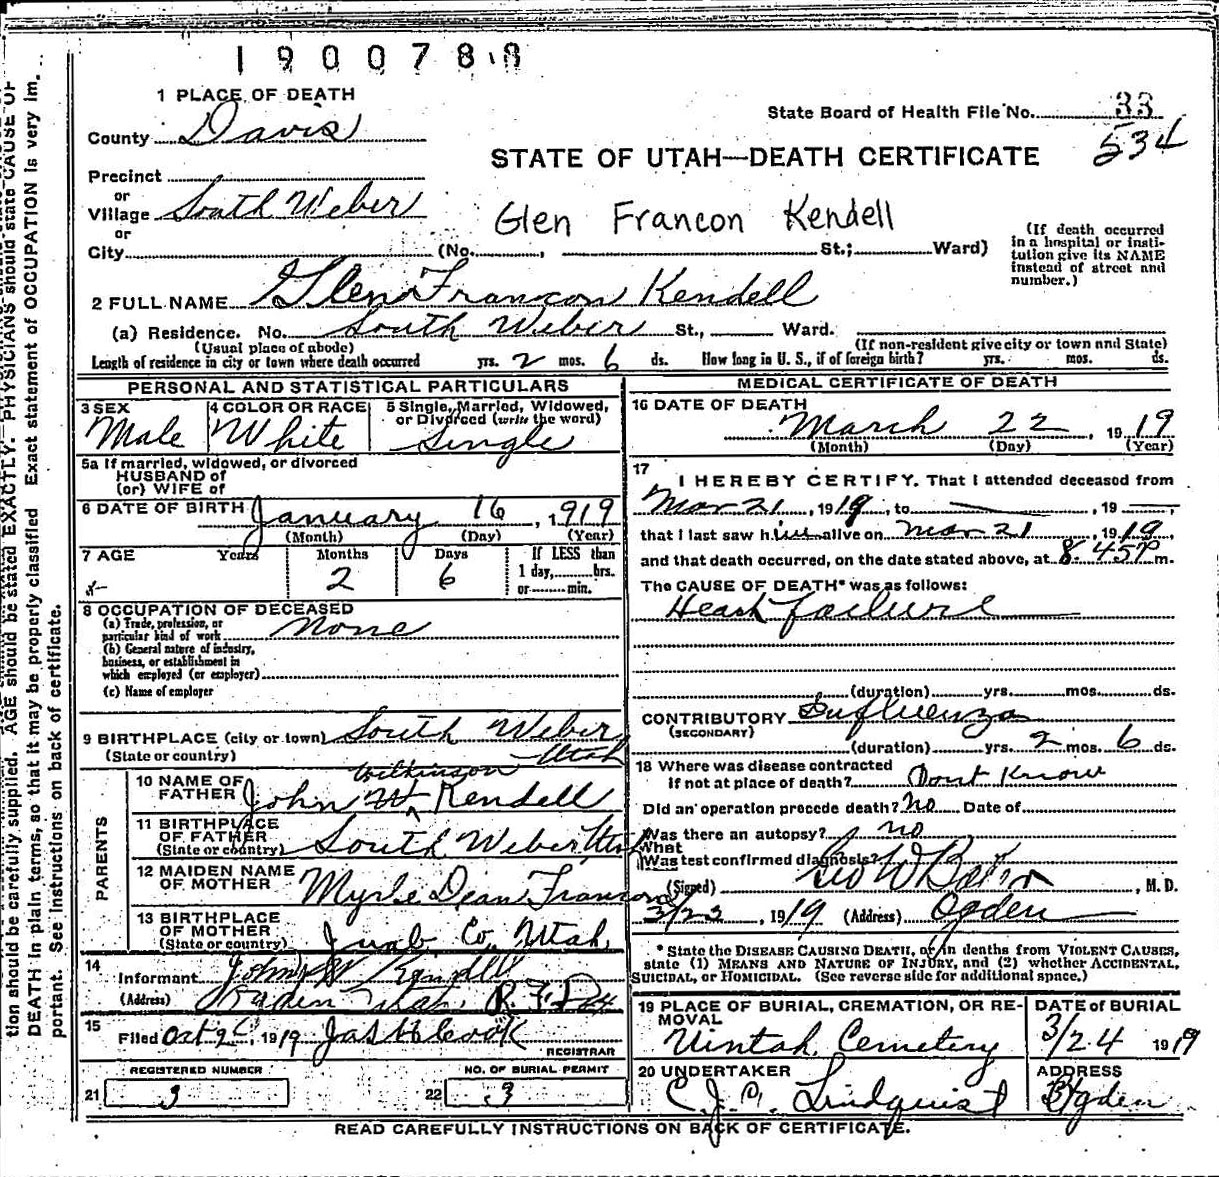 1900788
1 PLACE OF DEATH
State Board of Health File No. 33
534
County Davis
STATE OF UTAH—DEATH CERTIFICATE
Precinct
or
Village South Weber
Glen Francon Kendell
or
City (No. , St.; Ward)
(If death occurred in a hospital or insti-
tution give its NAME
instead of street and
number.)
2 FULL NAME Glen Francon Kendell
(a) Residence. No. South Weber St., Ward.
(Usual place of abode) (If non-resident give city or town and State)
Length of residence in city or town where death occurred yrs. 2 mos. 6 ds. How long in U. S., if of foreign birth? yrs. mos. ds.
PERSONAL AND STATISTICAL PARTICULARS
3 SEX 4 COLOR OR RACE 5 Single, Married, Widowed,
or Divorced (write the word)
Male White Single
5a If married, widowed, or divorced
HUSBAND of
(or) WIFE of
6 DATE OF BIRTH January 16, 1919
(Month) (Day) (Year)
7 AGE Years Months Days If LESS than
1 day, hrs.
or min.
2 6
8 OCCUPATION OF DECEASED
(a) Trade, profession, or
particular kind of work None
(b) General nature of industry,
business, or establishment in
which employed (or employer)
(c) Name of employer
9 BIRTHPLACE (city or town) South Weber
(State or country) Utah
10 NAME OF
FATHER John W Kendell
Wilkinson
11 BIRTHPLACE
OF FATHER
(State or country) South Weber Utah
12 MAIDEN NAME
OF MOTHER Myrle Dean Francom
13 BIRTHPLACE
OF MOTHER
(State or country) Juab Co. Utah
PARENTS
14 Informant John W Kendell
(Address) Ogden Utah R.F.D #4
15 Filed Oct 1919 Jas H Cook
REGISTRAR
REGISTERED NUMBER NO. OF BURIAL PERMIT
21 3 22 3
MEDICAL CERTIFICATE OF DEATH
16 DATE OF DEATH
March 22, 1919
(Month) (Day) (Year)
17 I HEREBY CERTIFY. That I attended deceased from
Mar 21, 1919, to , 19
that I last saw him alive on Mar 21, 1919
and that death occurred, on the date stated above, at 8:45 P m.
The CAUSE OF DEATH* was as follows:
Heart failure
(duration) yrs. mos. ds.
CONTRIBUTORY Influenza
(SECONDARY)
(duration) yrs. 2 mos. 6 ds.
18 Where was disease contracted
if not at place of death? Dont Know
Did an operation precede death? no Date of
Was there an autopsy? no
What
Was test confirmed diagnosis?
(Signed) Geo W Baker, M. D.
3/23, 1919 (Address) Ogden
*State the DISEASE CAUSING DEATH, or in deaths from VIOLENT CAUSES,
state (1) MEANS AND NATURE OF INJURY, and (2) whether ACCIDENTAL,
SUICIDAL, or HOMICIDAL. (See reverse side for additional space.)
19 PLACE OF BURIAL, CREMATION, OR RE-
MOVAL
Uintah Cemetery
DATE of BURIAL
3/24 1919
20 UNDERTAKER
C.J.A. Lindquist
ADDRESS
Ogden
READ CAREFULLY INSTRUCTIONS ON BACK OF CERTIFICATE.
tion should be carefully supplied. AGE should be stated EXACTLY. PHYSICIANS should state CAUSE OF
DEATH in plain terms, so that it may be properly classified. Exact statement of OCCUPATION is very im.
portant. See instructions on back of certificate.